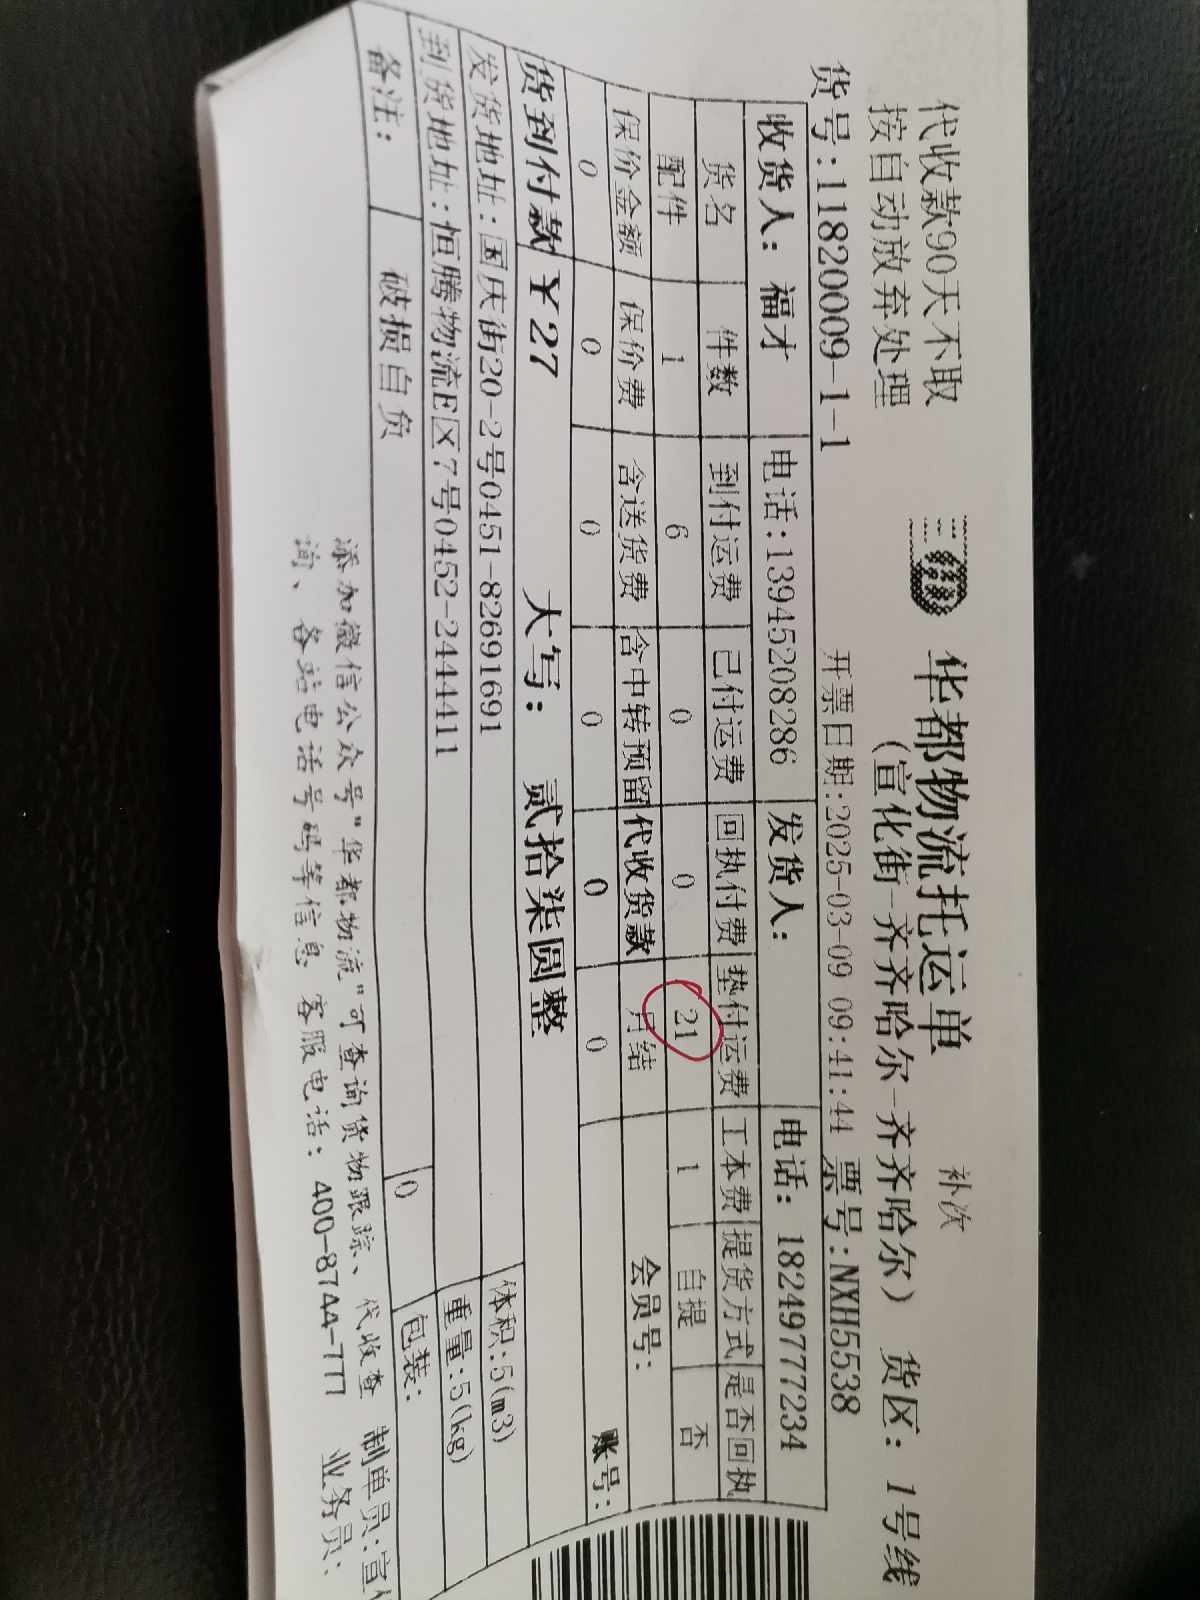 代收款90天不取
按自动放弃处理
华都物流托运单
补次
(宣化街-齐齐哈尔-齐齐哈尔)
货区: 1号线
货号:11820009-1-1
开票日期:2025-03-09 09:41:44
票号:NXH5538
收货人: 福才 电话:13945208286 发货人: 电话: 18249777234
货名 件数 到付运费 已付运费 回执付费 垫付运费 工本费 提货方式 是否回执
配件 1 6 0 0 21 1 自提 否
保价金额 保价费 含送货费 含中转预留 代收货款 月结 会员号:
0 0 0 0 0 0 账号:
货到付款 ￥27 大写: 贰拾柒圆整
发货地址:国庆街20-2号0451-82691691 体积:5(m3)
到货地址:恒腾物流E区7号0452-2444411 重量:5(kg)
备注: 破损自负 0 包装:
添加微信公众号"华都物流"可查询货物跟踪、代收查
询、各站电话号码等信息 客服电话: 400-8744-777
制单员:宣
业务员: